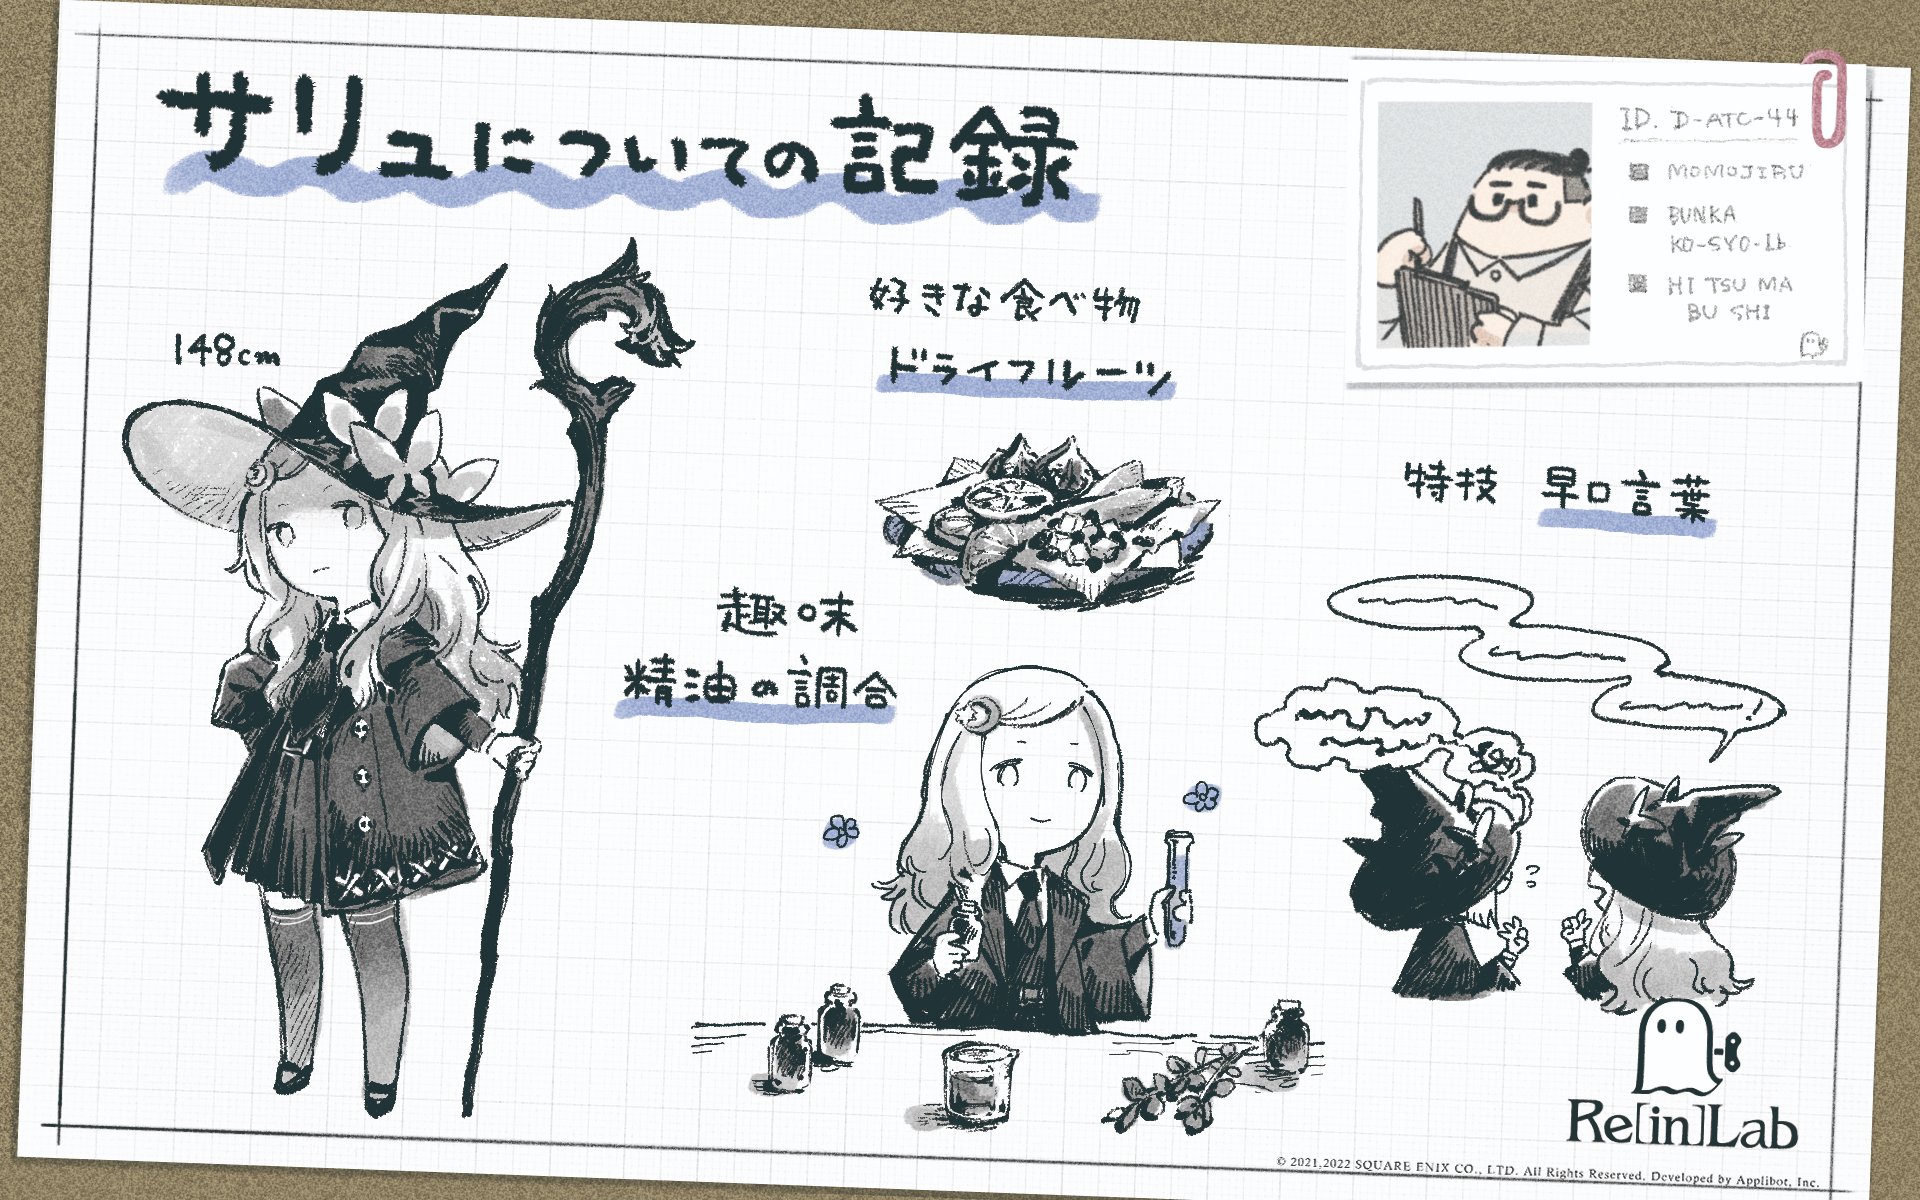 サリュについての記録
ID. D-ATC-44
MOMOJIRU
BUNKA
KO-SYO-Lb
HI TSU MA
BU SHI
148cm
好きな食べ物
ドライフルーツ
特技 早口言葉
趣味
精油の調合
Re[in]Lab
© 2021,2022 SQUARE ENIX CO., LTD. All Rights Reserved. Developed by Applibot, Inc.